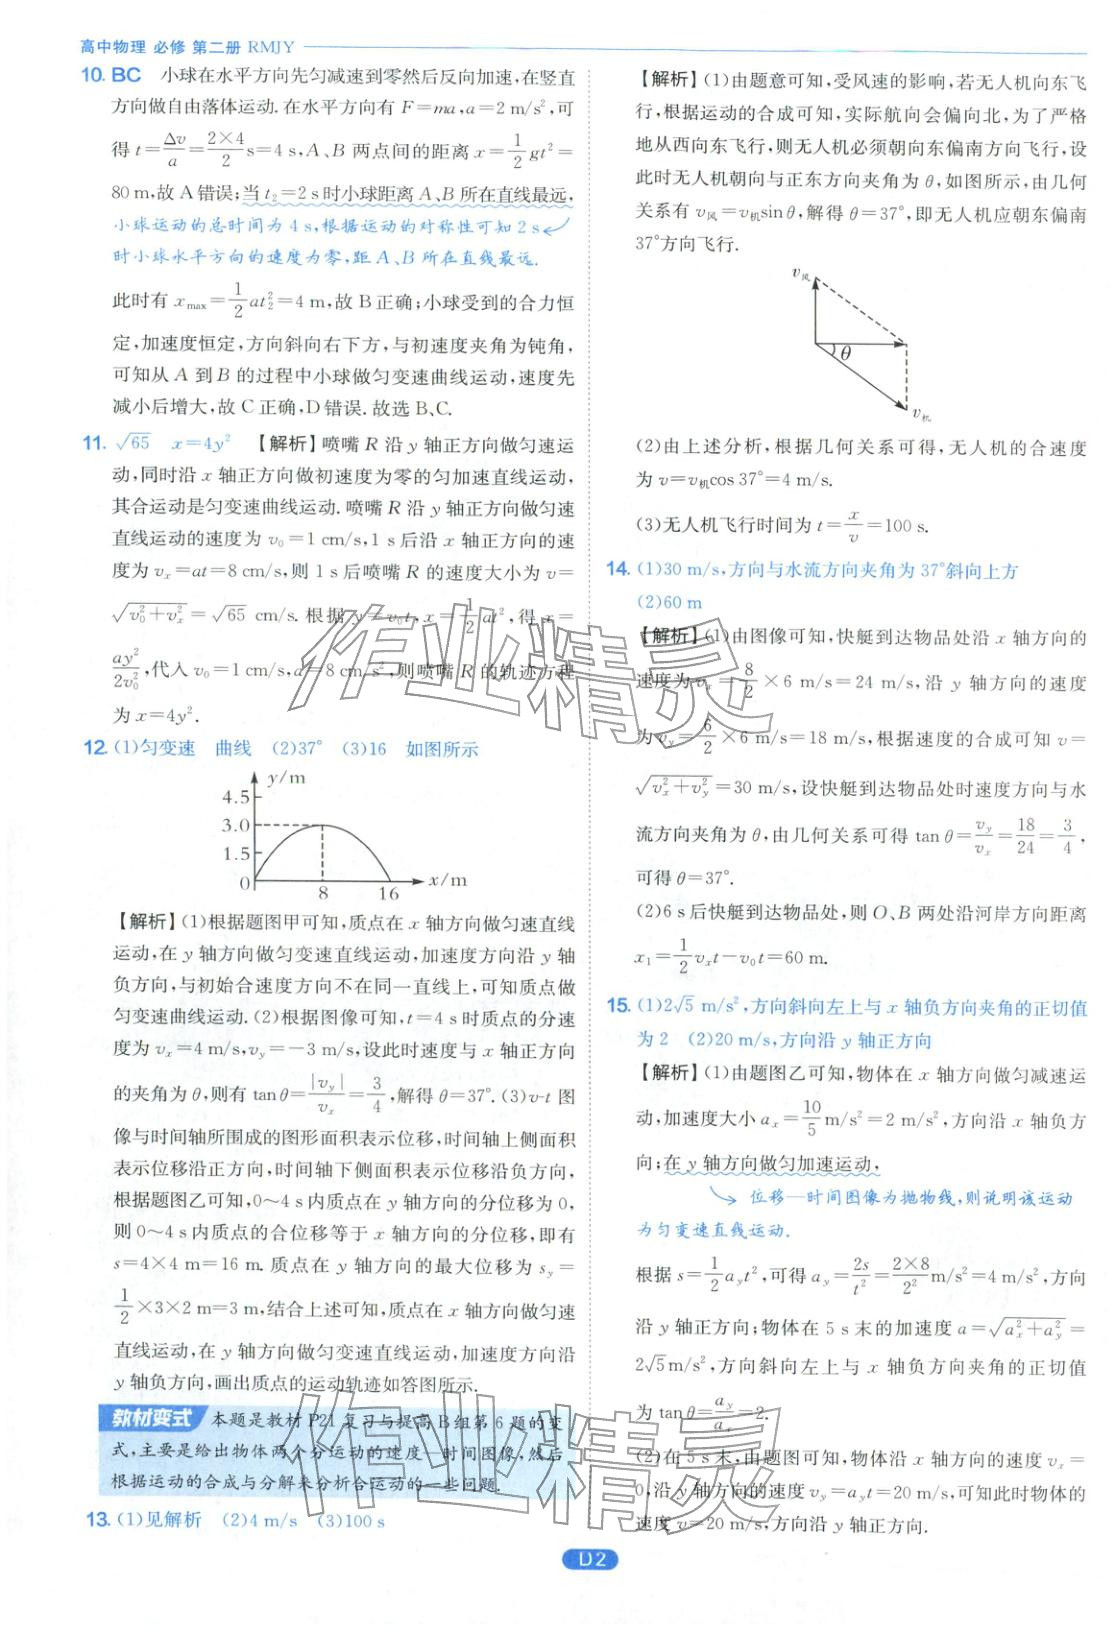 高中物理 必修 第二册 RMJY
10. BC 小球在水平方向先匀减速到零然后反向加速,在竖直
方向做自由落体运动.在水平方向有 F=ma,a=2 m/s²,可
得 t=Δv/a=2×4/2 s=4 s,A、B 两点间的距离 x=1/2 gt²=
80 m,故 A 错误;当 t₂=2 s 时小球距离 A、B 所在直线最远,
小球运动的总时间为 4 s,根据运动的对称性可知 2 s
时小球水平方向的速度为零,距 A、B 所在直线最远.
此时有 xmax=1/2 at₂²=4 m,故 B 正确;小球受到的合力恒
定,加速度恒定,方向斜向右下方,与初速度夹角为钝角,
可知从 A 到 B 的过程中小球做匀变速曲线运动,速度先
减小后增大,故 C 正确,D 错误.故选 B、C.
11. √65 x=4y² 【解析】喷嘴 R 沿 y 轴正方向做匀速运
动,同时沿 x 轴正方向做初速度为零的匀加速直线运动,
其合运动是匀变速曲线运动.喷嘴 R 沿 y 轴正方向做匀速
直线运动的速度为 v₀=1 cm/s,1 s 后沿 x 轴正方向的速
度为 vₓ=at=8 cm/s,则 1 s 后喷嘴 R 的速度大小为 v=
√(v₀²+vₓ²)=√65 cm/s.根据 y=v₀t,x=1/2 at²,得 x=
ay²/2v₀²,代入 v₀=1 cm/s,a=8 cm/s²,则喷嘴 R 的轨迹方程
为 x=4y².
12. (1)匀变速 曲线 (2)37° (3)16 如图所示
y/m
4.5
3.0
1.5
0 8 16 x/m
【解析】(1)根据题图甲可知,质点在 x 轴方向做匀速直线
运动,在 y 轴方向做匀变速直线运动,加速度方向沿 y 轴
负方向,与初始合速度方向不在同一直线上,可知质点做
匀变速曲线运动.(2)根据图像可知,t=4 s 时质点的分速
度为 vₓ=4 m/s,v_y=−3 m/s,设此时速度与 x 轴正方向
的夹角为 θ,则有 tan θ=|v_y|/vₓ=3/4,解得 θ=37°.(3)v-t 图
像与时间轴所围成的图形面积表示位移,时间轴上侧面积
表示位移沿正方向,时间轴下侧面积表示位移沿负方向,
根据题图乙可知,0~4 s 内质点在 y 轴方向的分位移为 0,
则 0~4 s 内质点的合位移等于 x 轴方向的分位移,即有
s=4×4 m=16 m.质点在 y 轴方向的最大位移为 s_y=
1/2×3×2 m=3 m,结合上述可知,质点在 x 轴方向做匀速
直线运动,在 y 轴方向做匀变速直线运动,加速度方向沿
y 轴负方向,画出质点的运动轨迹如答图所示.
教材变式 本题是教材 P21 复习与提高 B 组第 6 题的变
式,主要是给出物体两个分运动的速度—时间图像,然后
根据运动的合成与分解来分析合运动的一些问题.
13. (1)见解析 (2)4 m/s (3)100 s
【解析】(1)由题意可知,受风速的影响,若无人机向东飞
行,根据运动的合成可知,实际航向会偏向北,为了严格
地从西向东飞行,则无人机必须朝向东偏南方向飞行,设
此时无人机朝向与正东方向夹角为 θ,如图所示,由几何
关系有 v风=v机sin θ,解得 θ=37°,即无人机应朝东偏南
37°方向飞行.
v风
θ
v机
(2)由上述分析,根据几何关系可得,无人机的合速度
为 v=v机cos 37°=4 m/s.
(3)无人机飞行时间为 t=x/v=100 s.
14. (1)30 m/s,方向与水流方向夹角为 37°斜向上方
(2)60 m
【解析】(1)由图像可知,快艇到达物品处沿 x 轴方向的
速度为 vₓ=8/2×6 m/s=24 m/s,沿 y 轴方向的速度
为 v_y=6/2×6 m/s=18 m/s,根据速度的合成可知 v=
√(vₓ²+v_y²)=30 m/s,设快艇到达物品处时速度方向与水
流方向夹角为 θ,由几何关系可得 tan θ=v_y/vₓ=18/24=3/4,
可得 θ=37°.
(2)6 s 后快艇到达物品处,则 O、B 两处沿河岸方向距离
x₁=1/2 vₓt−v₀t=60 m.
15. (1)2√5 m/s²,方向斜向左上与 x 轴负方向夹角的正切值
为 2 (2)20 m/s,方向沿 y 轴正方向
【解析】(1)由题图乙可知,物体在 x 轴方向做匀减速运
动,加速度大小 aₓ=10/5 m/s²=2 m/s²,方向沿 x 轴负方
向;在 y 轴方向做匀加速运动,
位移—时间图像为抛物线,则说明该运动
为匀变速直线运动.
根据 s=1/2 a_yt²,可得 a_y=2s/t²=2×8/2² m/s²=4 m/s²,方向
沿 y 轴正方向;物体在 5 s 末的加速度 a=√(aₓ²+a_y²)=
2√5 m/s²,方向斜向左上与 x 轴负方向夹角的正切值
为 tan θ=a_y/aₓ=2.
(2)在 5 s 末,由题图可知,物体沿 x 轴方向的速度 vₓ=
0,沿 y 轴方向的速度 v_y=a_yt=20 m/s,可知此时物体的
速度 v=20 m/s,方向沿 y 轴正方向.
作业精灵
作业精灵
D2